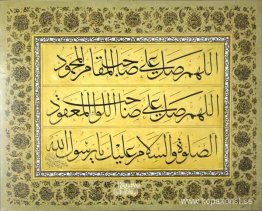 اللهم صل على صاحب المقام المحمود
اللهم صل على صاحب اللواء المعقود
الصلوة والسلام عليك يا رسول الله
www.kopiakonst.se